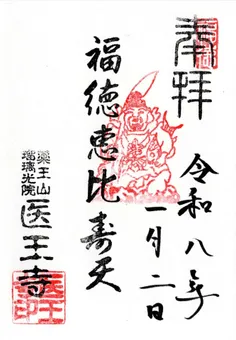 奉拝
令和八年
一月二日
福徳恵比寿天
薬王山
瑠璃光院
医王寺